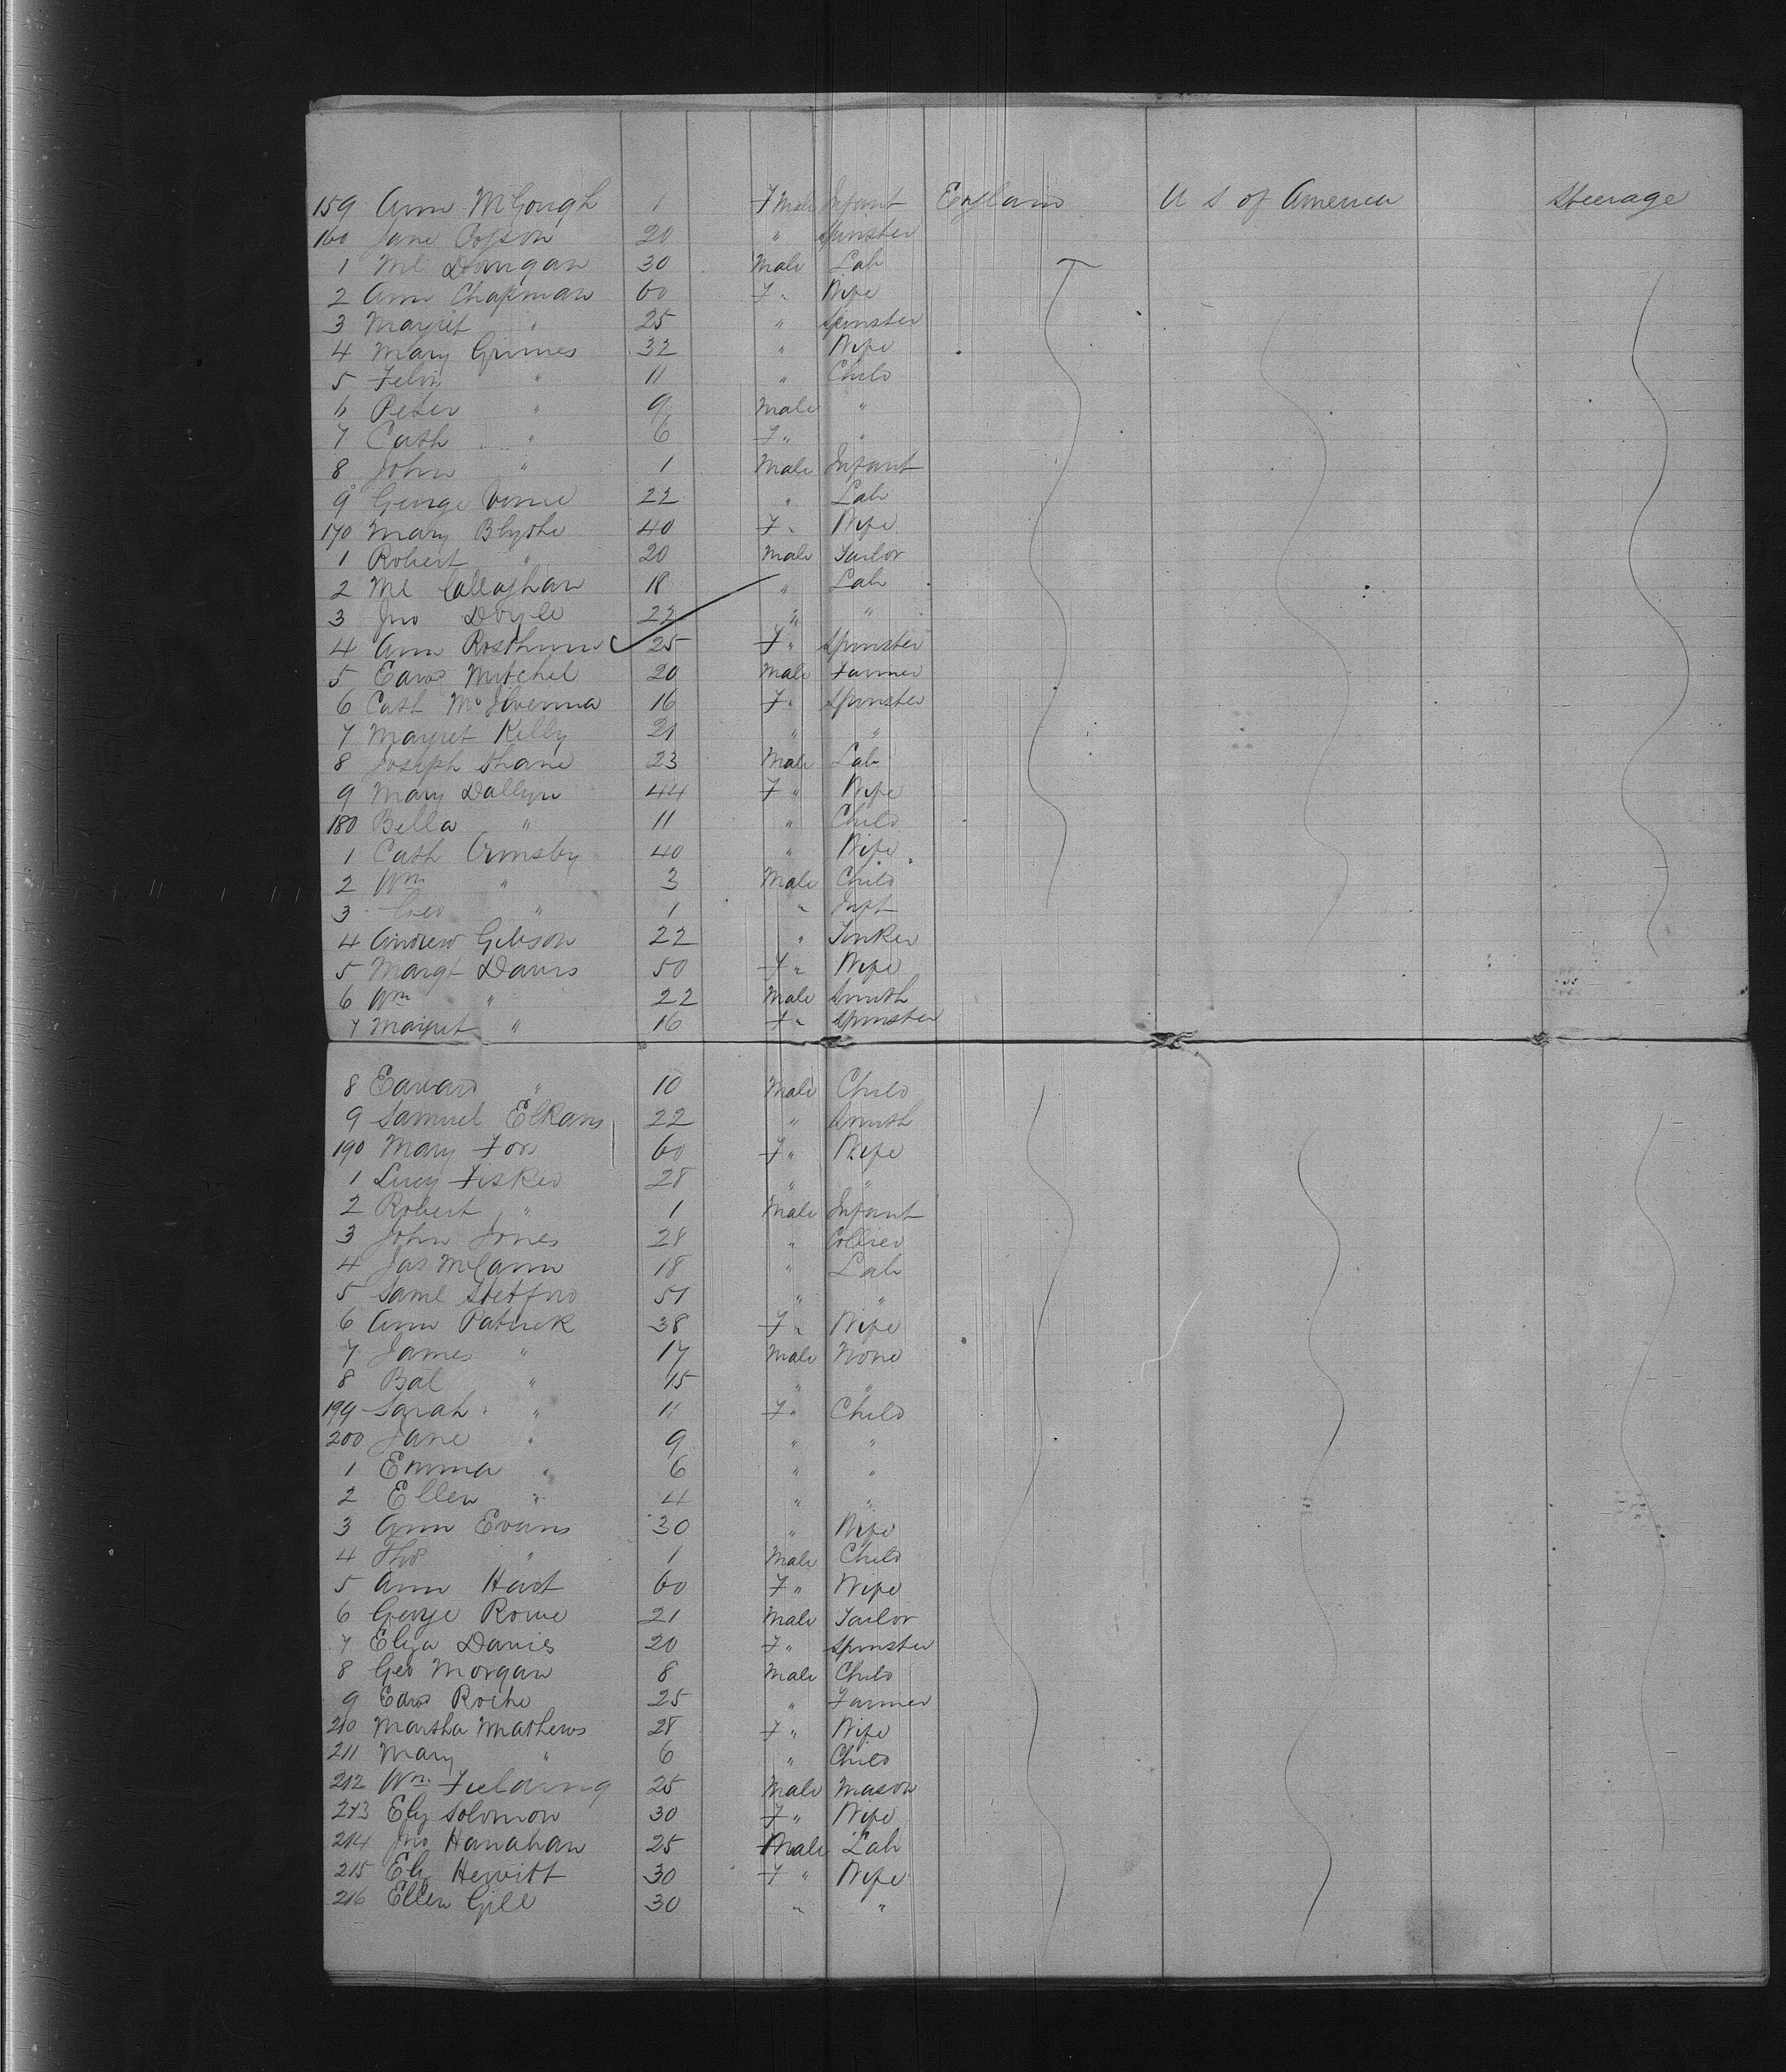 159 Ann McGough 1 F Male Infant England U S of America Steerage
160 Jane 20 " Spinster
1 Ml Dongan 30 Male Lab
2 Ann Chapman 60 F " Wife
3 Margret " 25 " Spinster
4 Mary Grimes 32 " Wife
5 " 11 " Child
6 Peter " 9 Male "
7 Cath " 6 F " "
8 John " 1 Male Infant
9 George 22 " Lab
170 Mary Blythe 40 F " Wife
1 Robert " 20 Male Tailor
2 Ml Callaghan 18 " Lab
3 Jno Doyle 22 " "
4 Ann 25 F " Spinster
5 Edwd Mitchel 20 Male Farmer
6 Cath McIlvenna 16 F " Spinster
7 Margret Kelly 21 " "
8 Joseph Shane 23 Male Lab
9 Mary Dallyn 44 F " Wife
180 Bella " 11 " Child
1 Cath Ormsby 40 " Wife
2 Wm " 3 Male Child
3 Geo " 1 " Inft
4 Andrew Gibson 22 " Tinker
5 Margt Davis 50 F " Wife
6 Wm " 22 Male Smith
7 Margret " 16 F " Spinster
8 Edward " 10 Male Child
9 Samuel Elkans 22 " Smith
190 Mary Fox 60 F " Wife
1 Lucy Fisher 28 " "
2 Robert " 1 Male Infant
3 John Jones 28 " Collier
4 Jas McCann 18 " Lab
5 Saml Stetford 51 " "
6 Ann Patrick 38 F " Wife
7 James " 17 Male None
8 " 15 " "
199 Sarah " 11 F " Child
200 Jane " 9 " "
1 Emma " 6 " "
2 Ellen " 4 " "
3 Ann Evans 30 " Wife
4 Thos " 1 Male Child
5 Ann Hart 60 F " Wife
6 George Rowe 21 Male Tailor
7 Eliza Davies 20 F " Spinster
8 Geo Morgan 8 Male Child
9 Edwd Roche 25 " Farmer
210 Martha Mathews 28 F " Wife
211 Mary " 6 " Child
212 Wm Fielding 25 Male Mason
213 Elz Solomon 30 F " Wife
214 Jno Hanahan 25 Male Lab
215 Elz Hewitt 30 F " Wife
216 Ellen Gill 30 " "